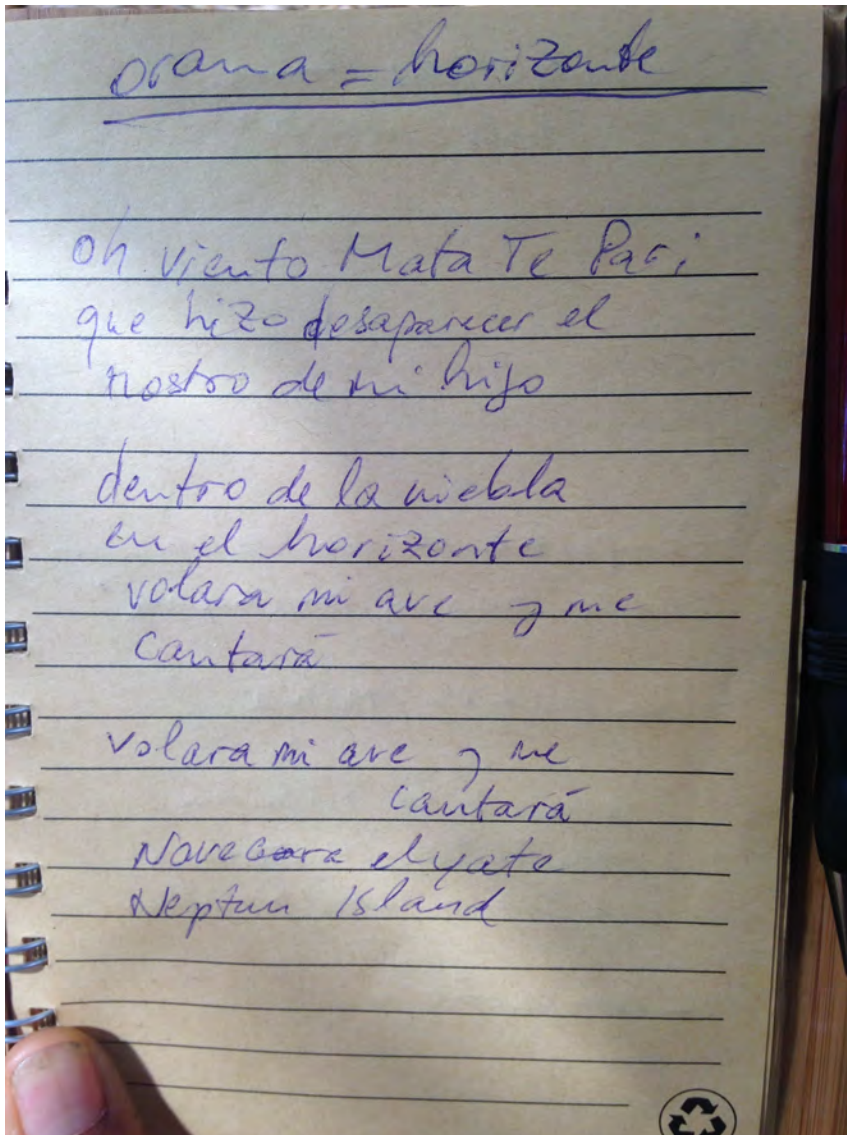 orama = horizonte
oh viento Mata Te Pari
que hizo desaparecer el
rostro de mi hijo
dentro de la niebla
en el horizonte
volara mi ave y me
cantará
volara mi ave y me
cantará
Navegara el yate
Neptun Island